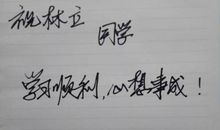 祝林立
同学
学习顺利,心想事成!